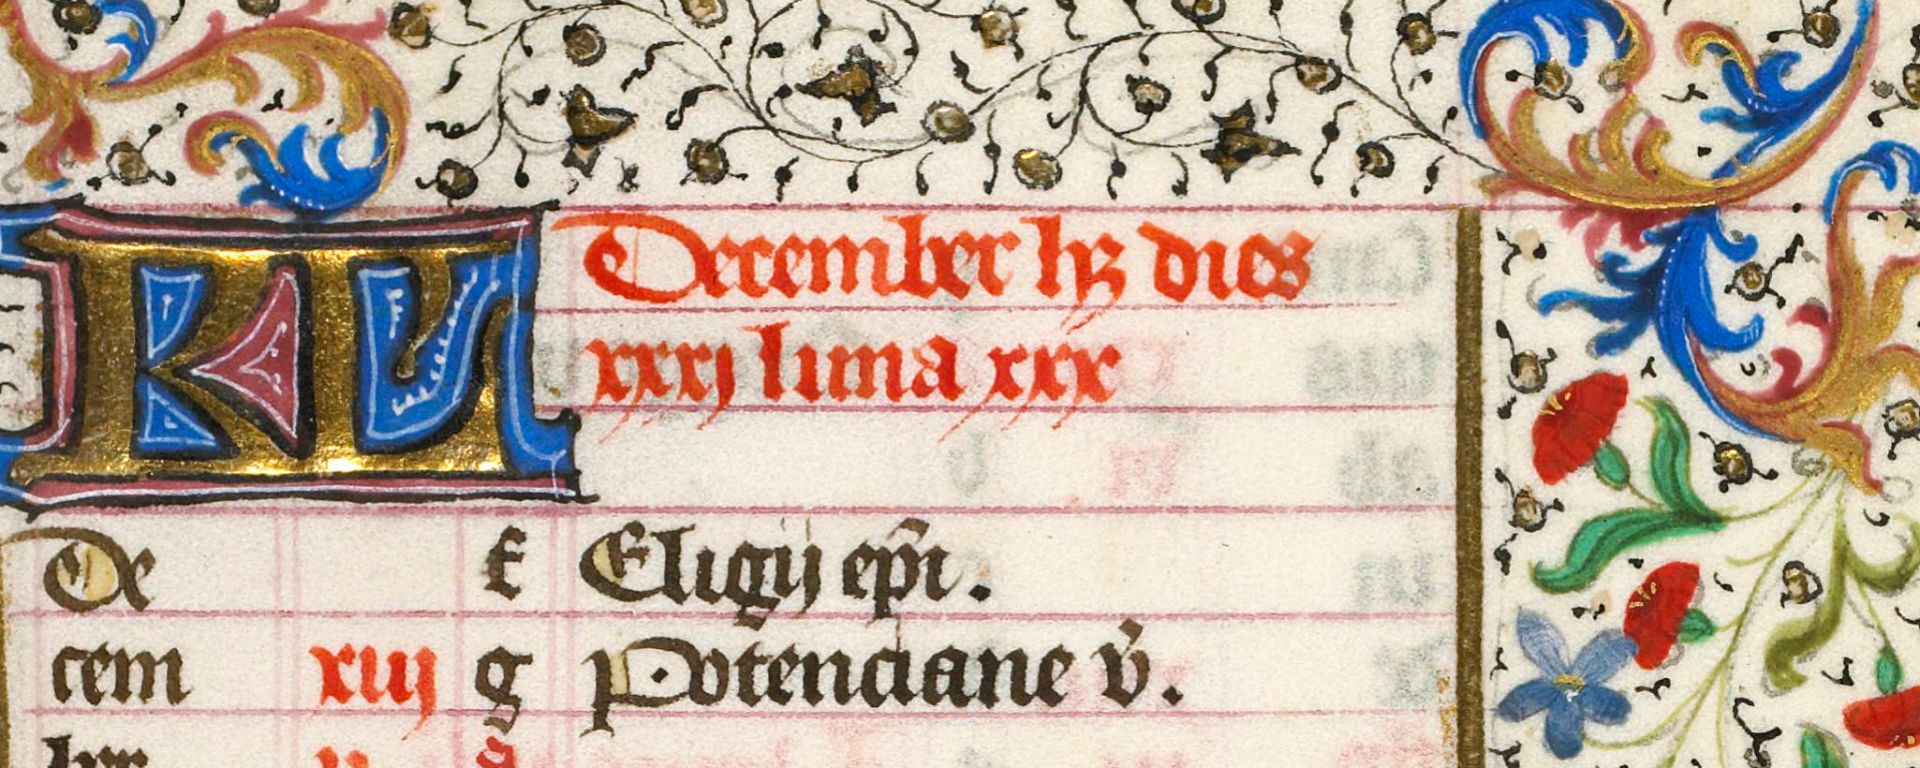 KL December hꝫ dies
xxxj luna xxx
De f Eligij ep̄i.
cem xiij g Potenciane v̄.